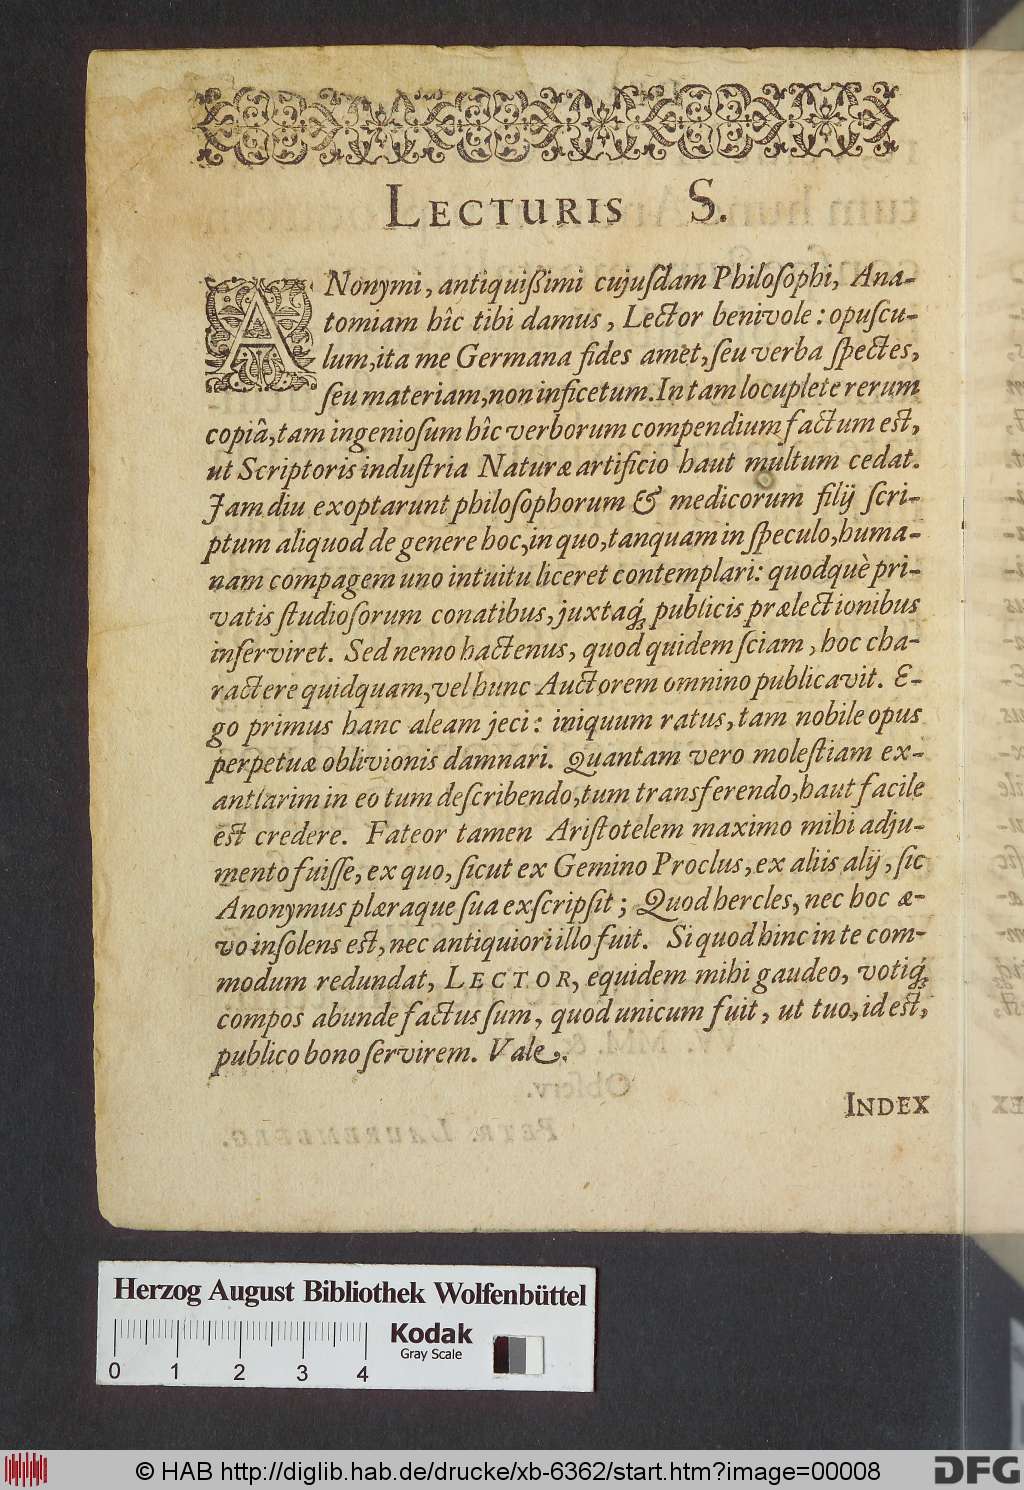 LECTURIS S.
ANonymi, antiquißimi cujuſdam Philoſophi, Ana-
tomiam hîc tibi damus, Lector benivole: opuſcu-
lum, ita me Germana fides amet, ſeu verba ſpectes,
ſeu materiam, non inficetum. In tam locuplete rerum
copiâ, tam ingenioſum hîc verborum compendium factum eſt,
ut Scriptoris induſtria Naturæ artificio haut multum cedat.
Jam diu exoptarunt philoſophorum & medicorum filij ſcri-
ptum aliquod de genere hoc, in quo, tanquam in ſpeculo, huma-
nam compagem uno intuitu liceret contemplari: quodquè pri-
vatis ſtudioſorum conatibus, juxtaq́; publicis prælectionibus
inſerviret. Sed nemo hactenus, quod quidem ſciam, hoc cha-
ractere quidquam, vel hunc Auctorem omnino publicavit. E-
go primus hanc aleam jeci: iniquum ratus, tam nobile opus
perpetuæ oblivionis damnari. Quantam vero moleſtiam ex-
antlarim in eo tum deſcribendo, tum transferendo, haut facile
eſt credere. Fateor tamen Ariſtotelem maximo mihi adju-
mento fuiſſe, ex quo, ſicut ex Gemino Proclus, ex aliis alij, ſic
Anonymus plæraque ſua exſcripſit; Quod hercles, nec hoc æ-
vo inſolens eſt, nec antiquiori illo fuit. Si quod hinc in te com-
modum redundat, LECTOR, equidem mihi gaudeo, votiq́;
compos abunde factus ſum, quod unicum fuit, ut tuo, id eſt,
publico bono ſervirem. Vale.
INDEX
Herzog August Bibliothek Wolfenbüttel
Kodak
Gray Scale
0 1 2 3 4
© HAB http://diglib.hab.de/drucke/xb-6362/start.htm?image=00008
DFG